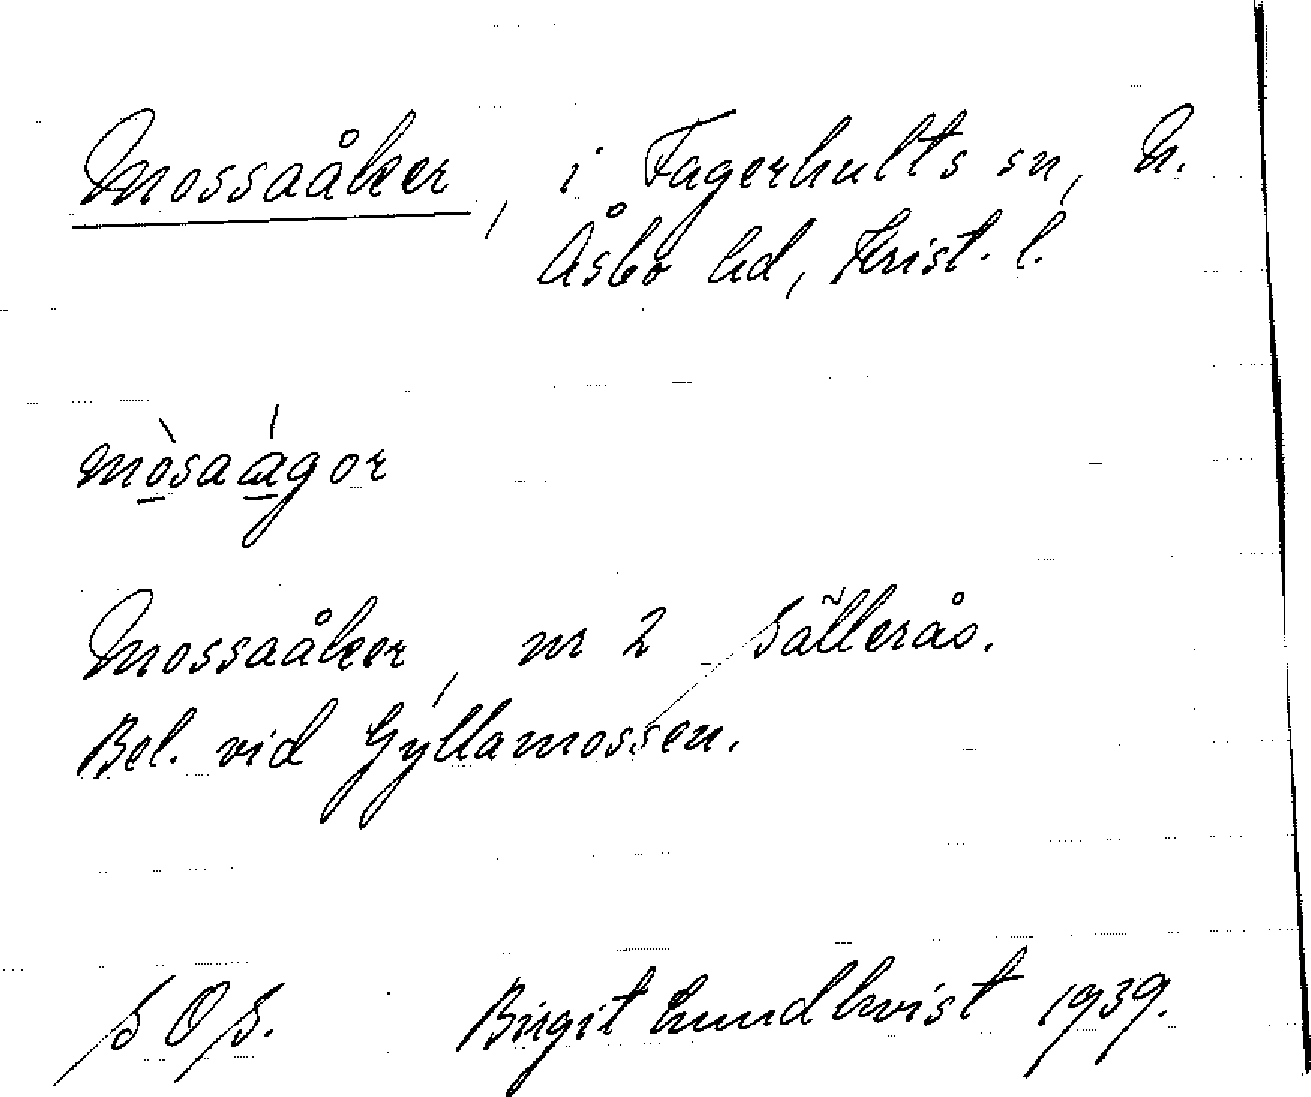 Mossaåker, i Fagerhults sn, N.
Åsbo hd, Krist. l.
mòsaágor
Mossaåker, nr 2 Sällerås.
Bel. vid Gyllamossen.
S O S. Birgit Lundkvist 1939.